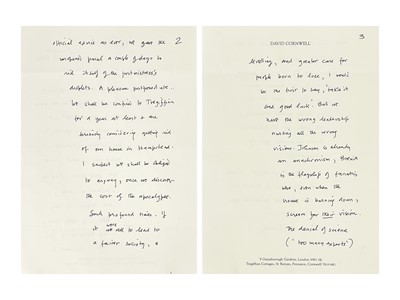 2
official advice as ever, we gave the
a couple of days to
rid itself of the postmistress's
droplets. A pleasure postponed etc..
We shall be confined to Tregiffian
for a year at least & are
seriously considering getting rid
of our house in Hampstead.
I suspect we shall be obliged
to anyway, once we discover
the cost of the apocalypse.
Such profound times. If
it were all to lead to
a fairer society, a
3
DAVID CORNWELL
levelling, and greater care for
people born to lose, I would
be the first to say, 'take it
and good luck'. But we
have the wrong leadership
nursing all the wrong
visions. Johnson is already
an anachronism, Brexit
is the flagship of fanatics
who, even when the
house is burning down,
scream for their vision.
The denial of science
("too many experts")
9 Gainsborough Gardens, London NW3 1BJ
Tregiffian Cottages, St Buryan, Penzance, Cornwall